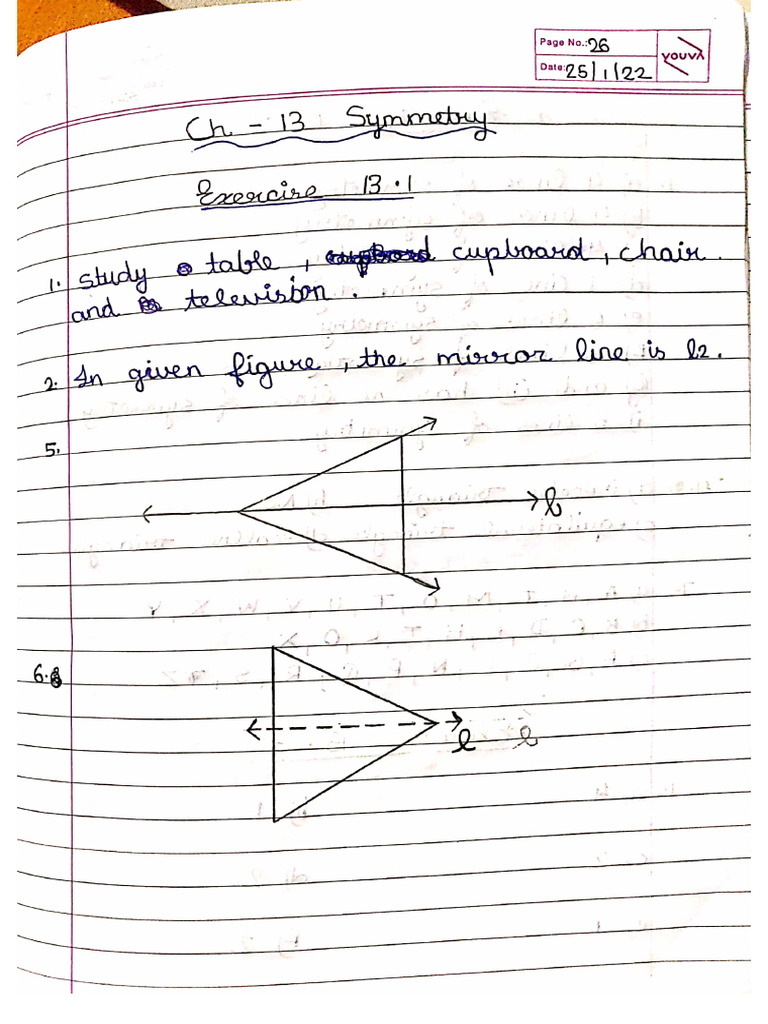 Page No.: 26
youva
Date: 25/1/22
Ch - 13 Symmetry
Exercise 13.1
1. Study table, cupboard, chair
and television.
2. In given figure, the mirror line is l2.
5.
l
6.
l
l